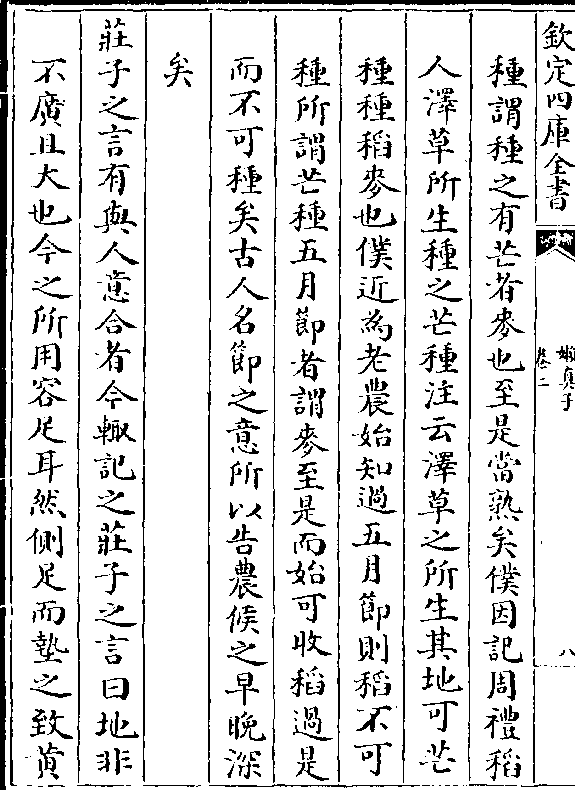 欽定四庫全書
嬾真子
卷二
八
種謂種之有芒者麥也至是當熟矣僕因記周禮稻
人澤草所生種之芒種注云澤草之所生其地可芒
種種稻麥也僕近為老農始知過五月節則稻不可
種所謂芒種五月節者謂麥至是而始可收稻過是
而不可種矣古人名節之意所以告農候之早晚深
矣
莊子之言有與人意合者今輙記之莊子之言曰地非
不廣且大也今之所用容足耳然側足而墊之致黄